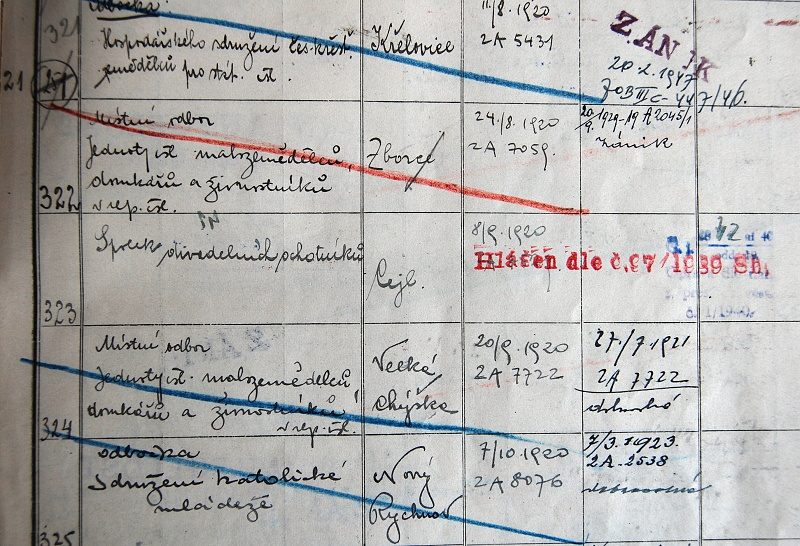 odbočka
Hospodářského sdružení čes. křesť.
zemědělců pro
Křelovice
11/8. 1920
2A 5431
ZÁNIK
20.2.1947
321
Místní odbor
Jednoty malozemědělců,
domkářů a živnostníků
v rep.
Zborce
24./8. 1920
2A 7059.
zánik
322
Spolek divadelních ochotníků
Cejl.
8/9. 1920
Hlášen dle č. 97/1939 Sb.
323
Místní odbor
Jednoty malozemědělců
domkářů a živnostníků
v rep.
Velká
Chýška
20/9. 1920
2A 7722
27./7. 1921
2A 7722
324
odbočka
Sdružení katolické
mládeže
Nový
Rychnov
7/10. 1920
2A 8076
7/3. 1923.
2A. 2538
325